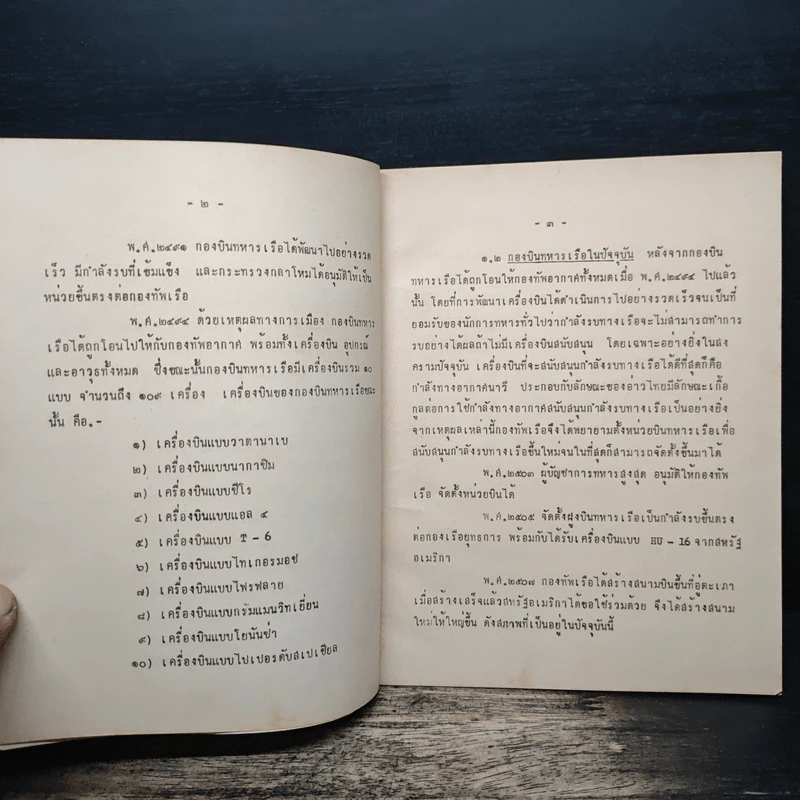 - ๒ -
พ.ศ.๒๔๙๑ กองบินทหารเรือได้พัฒนาไปอย่างรวด
เร็ว มีกำลังรบที่เข้มแข็ง และกระทรวงกลาโหมได้อนุมัติให้เป็น
หน่วยขึ้นตรงต่อกองทัพเรือ
พ.ศ.๒๔๙๔ ด้วยเหตุผลทางการเมือง กองบินทหาร
เรือได้ถูกโอนไปให้กับกองทัพอากาศ พร้อมทั้งเครื่องบิน อุปกรณ์
และอาวุธทั้งหมด ซึ่งขณะนั้นกองบินทหารเรือมีเครื่องบินรวม ๑๐
แบบ จำนวนถึง ๑๐๙ เครื่อง เครื่องบินของกองบินทหารเรือขณะ
นั้น คือ.-
๑) เครื่องบินแบบวาตานาเบ
๒) เครื่องบินแบบนากาชิม
๓) เครื่องบินแบบซีโร
๔) เครื่องบินแบบแอล ๔
๕) เครื่องบินแบบ T - 6
๖) เครื่องบินแบบไทเกอรมอซ
๗) เครื่องบินแบบไฟรฟลาย
๘) เครื่องบินแบบกรัมแมนวิทเยี่ยน
๙) เครื่องบินแบบโยนันซ่า
๑๐) เครื่องบินแบบไปเปอรคับสเปเชียล
- ๓ -
๑.๒ กองบินทหารเรือในปัจจุบัน หลังจากกองบิน
ทหารเรือได้ถูกโอนให้กองทัพอากาศทั้งหมดเมื่อ พ.ศ.๒๔๙๔ ไปแล้ว
นั้น โดยที่การพัฒนาเครื่องบินได้ดำเนินการไปอย่างรวดเร็วจนเป็นที่
ยอมรับของนักการทหารทั่วไปว่ากำลังรบทางเรือจะไม่สามารถทำการ
รบอย่างได้ผลถ้าไม่มีเครื่องบินสนับสนุน โดยเฉพาะอย่างยิ่งในสง
ครามปัจจุบัน เครื่องบินที่จะสนับสนุนกำลังรบทางเรือได้ดีที่สุดก็คือ
กำลังทางอากาศนาวี ประกอบกับลักษณะของอ่าวไทยมีลักษณะเกื้อ
กูลต่อการใช้กำลังทางอากาศสนับสนุนกำลังรบทางเรือเป็นอย่างยิ่ง
จากเหตุผลเหล่านี้กองทัพเรือจึงได้พยายามตั้งหน่วยบินทหารเรือเพื่อ
สนับสนุนกำลังรบทางเรือขึ้นใหม่จนในที่สุดก็สามารถจัดตั้งขึ้นมาได้
พ.ศ.๒๕๐๓ ผู้บัญชาการทหารสูงสุด อนุมัติให้กองทัพ
เรือ จัดตั้งหน่วยบินได้
พ.ศ.๒๕๐๕ จัดตั้งฝูงบินทหารเรือเป็นกำลังรบขึ้นตรง
ต่อกองเรือยุทธการ พร้อมกับได้รับเครื่องบินแบบ HU - 16 จากสหรัฐ
อเมริกา
พ.ศ.๒๕๐๗ กองทัพเรือได้สร้างสนามบินขึ้นที่อู่ตะเภา
เมื่อสร้างเสร็จแล้วสหรัฐอเมริกาได้ขอใช้ร่วมด้วย จึงได้สร้างสนาม
ใหม่ให้ใหญ่ขึ้น ดังสภาพที่เป็นอยู่ในปัจจุบันนี้